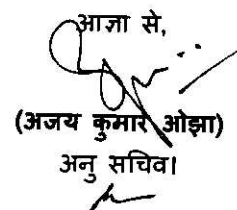 आज्ञा से,
(अजय कुमार ओझा)
अनु सचिव।